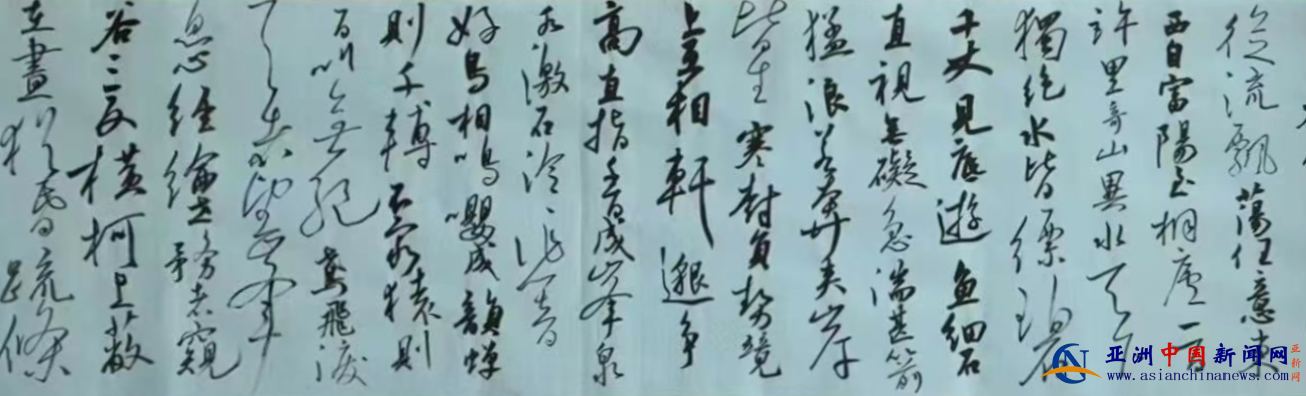 從流飄蕩任意東
西自富陽至桐廬一百
許里奇山異水天下
獨絕水皆縹碧
千丈見底遊魚細石
直視無礙急湍甚箭
猛浪若奔夾岸
皆生寒樹負勢競
上互相軒邈爭
高直指千百成峰泉
水激石泠泠作
好鳥相鳴嚶成韻蟬
則千轉不窮猿則
百叫無絕鳶飛
天者望峰
息心經綸世務者窺
谷忘反橫柯上蔽
在晝猶昏疏條
亚洲中国新闻网
www.asianchinanews.com
亚新网